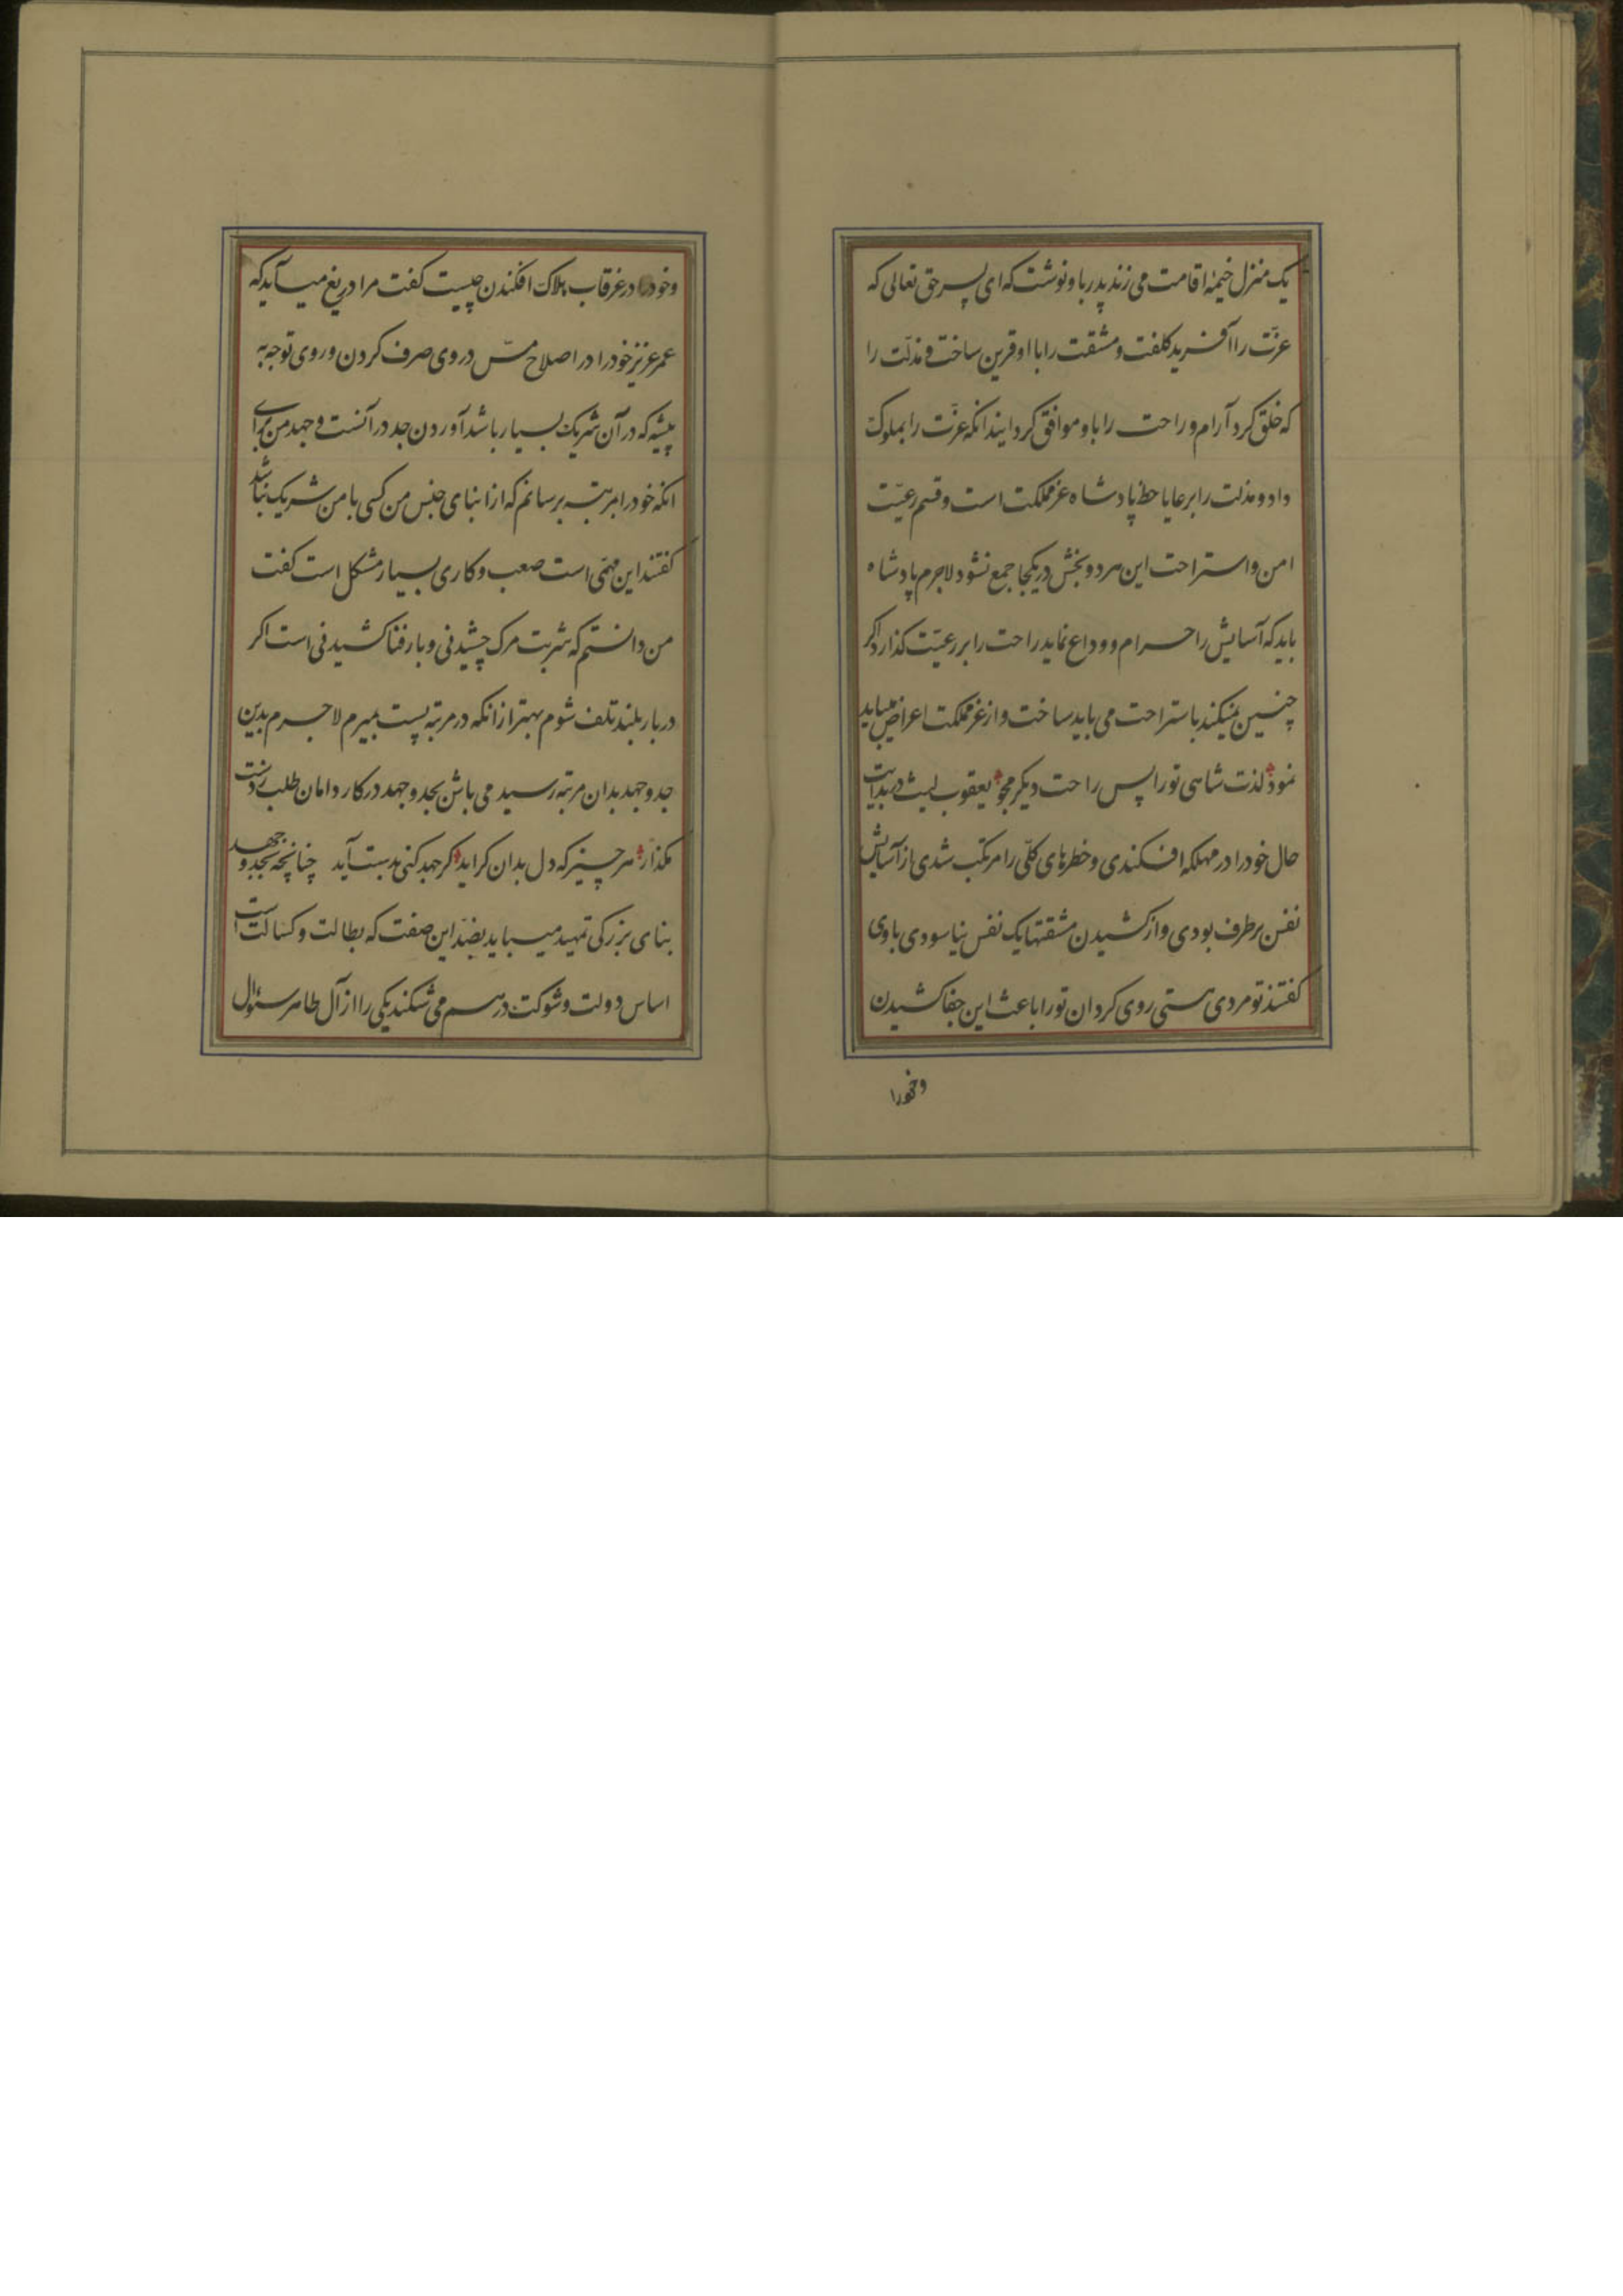 یک منزل خیمهٔ اقامت می زند پدر باو نوشت که ای پسر حق تعالی که
عزّت را آفرید کلفت و مشقت را با او قرین ساخت و مذلّت را
که خلق کرد آرام و راحت را باو موافق کردانید انکه عزّت را بملوک
داد و مذلت را برعایا حظ پادشاه عز مملکت است و قسم رعیّت
امن و استراحت این هر دو بخش در یکجا جمع نشود لاجرم پادشاه
باید که آسایش را حرام و وداع نماید راحت را بر رعیّت کذارد اکر
چنین نمیکند باستراحت می باید ساخت و از عز مملکت اعراض میباید
نمود لذت شاهی تو را پس راحت دیکر مجو یعقوب لیث در بدایت
حال خود را در مهلکه افکندی و خطرهای کلّی را مرتکب شدی از آسایش
نفس بر طرف بودی و از کشیدن مشقتها یک نفس نیاسودی باوی
کفتند تو مردی هستی روی کردان تو را باعث این جفا کشیدن
و خود را
و خود در غرقاب هلاک افکندن چیست کفت مرا دریغ میآید که
عمر عزیز خود را در اصلاح مسّ و روی صرف کردن و روی توجه به
پیشه که در آن شریک بسیار باشد آوردن جد در آنست و جهد من برای
انکه خود را بمرتبه برسانم که از ابنای جنس من کسی با من شریک نباشد
کفتند این مهمّی است صعب و کاری بسیار مشکل است کفت
من دانستم که شربت مرک چشیدنی و بار فنا کشیدنی است اکر
در بار بلند تلف شوم بهتر از انکه در مرتبه پست بمیرم لاجرم بدین
جد و جهد بدان مرتبه رسید می باش بجد و جهد در کار دامان طلب ز دست
مکذار هر چیز که دل بدان کراید کر جهد کنی بدست آید چنانچه بجد و جهد
بنای بزرکی تمهید میباید بضدّ این صفت که بطالت و کسالت است
اساس دولت و شوکت در هم می شکند یکی را از آل طاهر سئوال